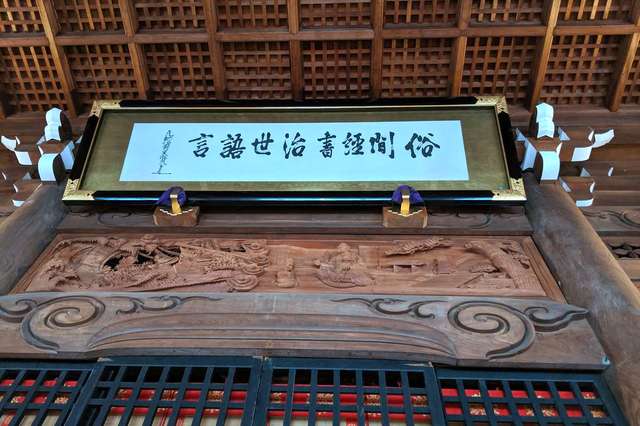 俗間經書治世語言